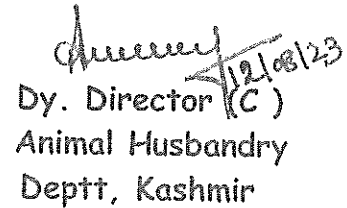 12/08/23
Dy. Director (C )
Animal Husbandry
Deptt, Kashmir